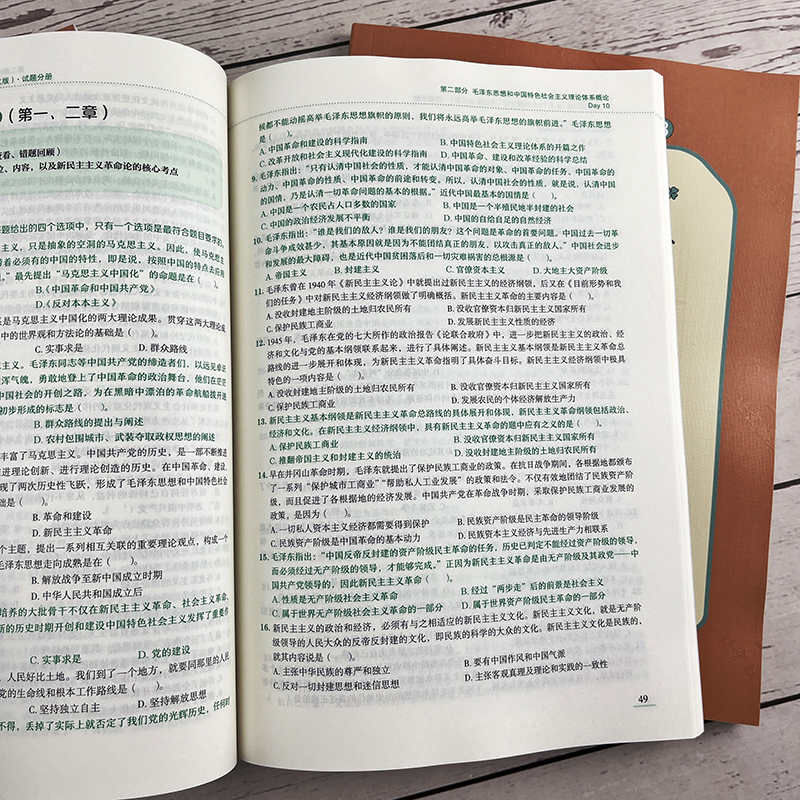 版）·试题分册
（第一、二章）
查看、错题回顾）
位、内容，以及新民主主义革命论的核心考点
题给出的四个选项中，只有一个选项是最符合题目要求的。
主义，只是抽象的空洞的马克思主义。因此，使马克思主
着必须有的中国的特性，即是说，按照中国的特点去应用
。”最先提出“马克思主义中国化”的命题是在（　　）。
B.《中国革命和中国共产党》
D.《反对本本主义》
是马克思主义中国化的两大理论成果。贯穿这两大理论成
中的世界观和方法论的基础是（　　）。
C. 实事求是　D. 群众路线
主义。毛泽东同志等中国共产党的缔造者们，以远见卓识
浑气魄，勇敢地登上了中国革命的政治舞台，他们在茫茫
中国社会的开创之路，为在黑暗中漂泊的革命航船拨开迷
初步形成的标志是（　　）。
B. 群众路线的提出与阐述
D. 农村包围城市、武装夺取政权思想的阐述
丰富了马克思主义。中国共产党的历史，是一部不断推进
进理论创新、进行理论创造的历史。在中国革命、建设、
现了两次历史性飞跃，形成了毛泽东思想和中国特色社会
础是（　　）。
B. 革命和建设
D. 新民主主义革命
个主题，提出一系列相互关联的重要理论观点，构成一个
毛泽东思想走向成熟是在（　　）。
B. 解放战争至新中国成立时期
D. 中华人民共和国成立后
培养的大批骨干不仅在新民主主义革命、社会主义革命、
新的历史时期开创和建设中国特色社会主义发挥了重要作
C. 实事求是　D. 党的建设
，人民好比土地。我们到了一个地方，就要同那里的人民
党的生命线和根本工作路线是（　　）。
C. 坚持独立自主　D. 坚持解放思想
不得，丢掉了实际上就否定了我们党的光辉历史，任何时
第二部分　毛泽东思想和中国特色社会主义理论体系概论
Day 10
候都不能动摇高举毛泽东思想旗帜的原则，我们将永远高举毛泽东思想的旗帜前进。”毛泽东思想
是（　　）。
A. 中国革命和建设的科学指南　B. 中国特色社会主义理论体系的开篇之作
C. 改革开放和社会主义现代化建设的科学指南　D. 中国革命、建设和改革经验的科学总结
9. 毛泽东指出：“只有认清中国社会的性质，才能认清中国革命的对象、中国革命的任务、中国革命的
动力、中国革命的性质、中国革命的前途和转变。所以，认清中国社会的性质，就是说，认清中国
的国情，乃是认清一切革命问题的基本的根据。”近代中国最基本的国情是（　　）。
A. 中国是一个农民占人口多数的国家　B. 中国是一个半殖民地半封建的社会
C. 中国的政治经济发展不平衡　D. 中国的自给自足的自然经济
10. 毛泽东指出：“谁是我们的敌人？谁是我们的朋友？这个问题是革命的首要问题。中国过去一切革
命斗争成效甚少，其基本原因就是因为不能团结真正的朋友，以攻击真正的敌人。”中国社会进步
和发展的最大障碍，也是近代中国贫困落后和一切灾难祸害的总根源是（　　）。
A. 帝国主义　B. 封建主义　C. 官僚资本主义　D. 大地主大资产阶级
11. 毛泽东曾在 1940 年《新民主主义论》中就提出过新民主主义的经济纲领，后又在《目前形势和我
们的任务》中对新民主主义经济纲领做了明确概括。新民主主义革命的主要内容是（　　）。
A. 没收封建地主阶级的土地归农民所有　B. 没收官僚资本归新民主主义国家所有
C. 保护民族工商业　D. 发展新民主主义性质的经济
12. 1945 年，毛泽东在党的七大所作的政治报告《论联合政府》中，进一步把新民主主义的政治、经
济和文化与党的基本纲领联系起来，进行了具体阐述。新民主主义基本纲领是新民主主义革命总
路线的进一步展开和体现，为新民主主义革命指明了具体奋斗目标。新民主主义经济纲领中极具
特色的一项内容是（　　）。
A. 没收封建地主阶级的土地归农民所有　B. 没收官僚资本归新民主主义国家所有
C. 保护民族工商业　D. 发展农民的个体经济解放生产力
13. 新民主主义基本纲领是新民主主义革命总路线的具体展开和体现，新民主主义革命纲领包括政治、
经济和文化。在新民主主义经济纲领中，具有新民主主义革命的题中应有之义的是（　　）。
A. 保护民族工商业　B. 没收官僚资本归新民主主义国家所有
C. 推翻帝国主义和封建主义的统治　D. 没收封建地主阶级的土地归农民所有
14. 早在井冈山革命时期，毛泽东就提出了保护民族工商业的政策。在抗日战争期间，各根据地都颁布
了一系列“保护城市工商业”“帮助私人工业发展”的政策和法令。不仅有效地团结了民族资产阶
级，而且促进了各根据地的经济发展。中国共产党在革命战争时期，采取保护民族工商业发展的
政策，是因为（　　）。
A. 一切私人资本主义经济都需要得到保护　B. 民族资产阶级是民主革命的领导阶级
C. 民族资产阶级是中国革命的基本动力　D. 民族资本主义经济与先进生产力相联系
15. 毛泽东指出：“中国反帝反封建的资产阶级民主革命的任务，历史已判定不能经过资产阶级的领导，
而必须经过无产阶级的领导，才能够完成。”正因为新民主主义革命是由无产阶级及其政党——中
国共产党领导的，因此新民主主义革命（　　）。
A. 性质是无产阶级社会主义革命　B. 经过“两步走”后的前景是社会主义
C. 属于世界无产阶级社会主义革命的一部分　D. 属于世界资产阶级民主革命的一部分
16. 新民主主义的政治和经济，必须有与之相适应的新民主主义文化。新民主主义文化，就是无产阶
级领导的人民大众的反帝反封建的文化，即民族的科学的大众的文化。新民主主义文化是民族的，
就其内容说是（　　）。
A. 主张中华民族的尊严和独立　B. 要有中国作风和中国气派
C. 反对一切封建思想和迷信思想　D. 主张客观真理及理论和实践的一致性
49